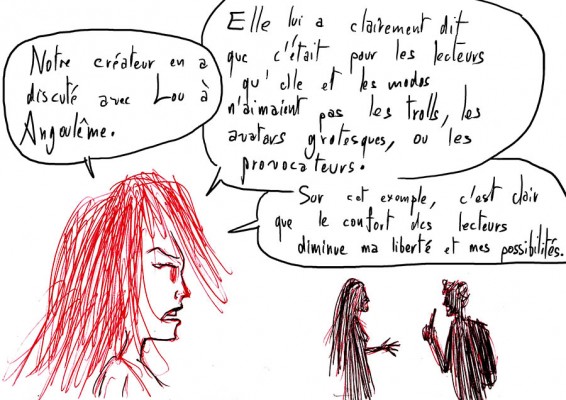 Notre créateur en a
discuté avec Lou à
Angoulême.
Elle lui a clairement dit
que c'était pour les lecteurs
qu'elle et les modos
n'aimaient pas les trolls, les
avatars grotesques, ou les
provocateurs.
Sur cet exemple, c'est clair
que le confort des lecteurs
diminue ma liberté et mes possibilités.